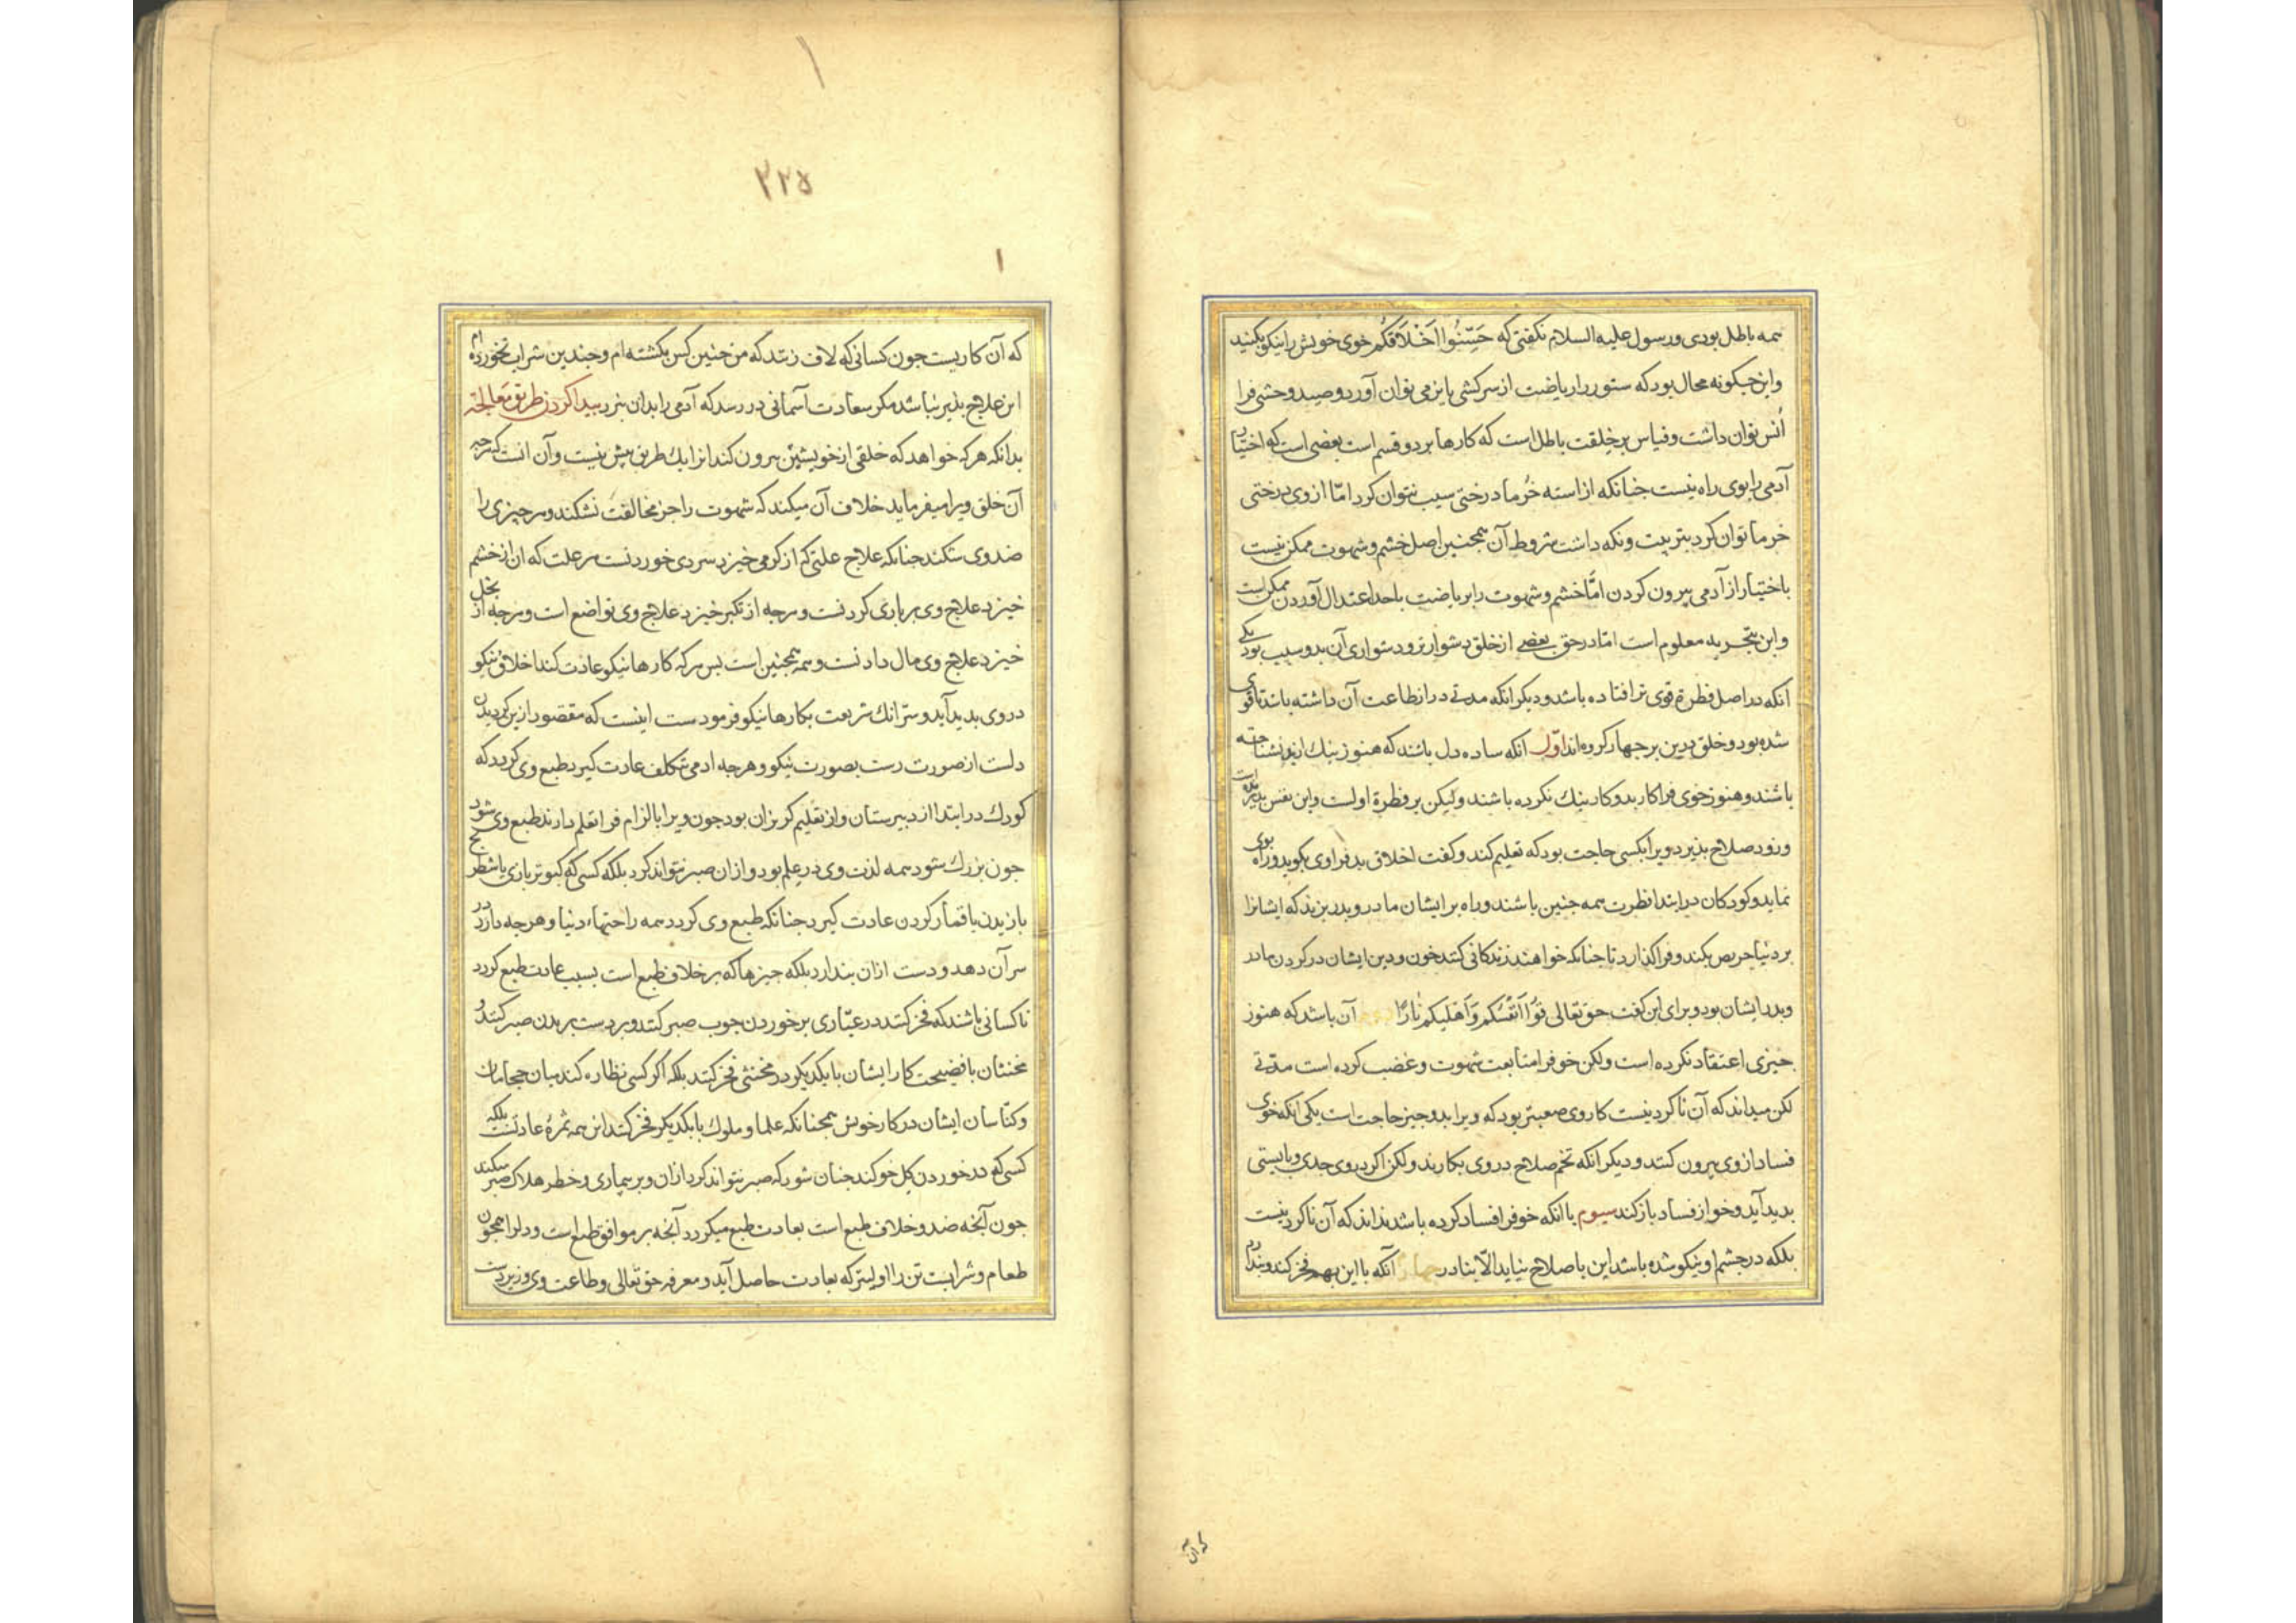 همه باطل بودی و رسول علیه السلام نکفتی که حَسِّنُوا اَخْلَاقَکُم خوی خویش را نیکو بکنید
واین جکونه محال بود که ستور را ریاضت از سرکشی بایزمی توان آورد و صید وحشی فرا
اُنس توان داشت وقیاس بر خِلقت باطل است که کارها بر دو قسم است بعضی است که اختیار
آدمی را بوی راه نیست جنانکه از استه خُرما درختی سیب نتوان کرد امّا از وی درختی
خرما توان کرد بتربیت ونکه داشت شروط آن همجنین اصل خشم و شهوت ممکن نیست
باختیار از آدمی بیرون کردن امّا خشم و شهوت را بریاضت باحد اعتدال آوردن ممکن است
واین بتجربه معلوم است امّا در حق بعضی از خلق دشوارتر و دشواری آن بدو سبب بود یکی
انکه در اصل فطرة قوی تر افتاده باشد و دیکر انکه مدتی در از طاعت آن داشته باشد تا قوی
شده بود و خلق درین بر جهار کروه اند اوّل انکه ساده دل باشند که هنوز نیك از بد نشناخته
باشند و هنوز خوی فرا کار بد و کار نیك نکرده باشند ولیکن بر فطرة اولست واین نفس بذیر است
وزود صلاح بذیرد ویرا بکسی حاجت بود که تعلیم کند وکفت اخلاق بد فرا وی بکوید و راه بوی
نماید و کودکان در ابتدا فطرت همه جنین باشند و راه بر ایشان مادر و بدر بزند که ایشانرا
بر دنیا حریص بکند و فرا کذارد تا جنانکه خواهند زندکانی کنند خون و دین ایشان در کردن مادر
وبدر ایشان بود و برای این کفت حق تعالی قُوا اَنْفُسَکُم وَاَهْلیکم نٰارًا آن باشد که هنوز
جیزی اعتقاد نکرده است ولکن خو فرا متابعت شهوت وغضب کرده است مدّتی
لکن میداند که آن ناکردینست کار وی صعبتر بود که ویرا بدو جیز حاجت است یکی انکه خوی
فساد از وی بیرون کنند و دیکر انکه تخم صلاح در وی بکارند ولکن اکر در وی جدی و بایستی
بدید آید و خو از فساد باز کند سیوم با انکه خو فرا فساد کرده باشد نداند که آن ناکردینست
بلکه در جشم او نیکو شده باشد این باصلاح نیاید الّا بنادر جهارم آنکه با این بهم فخر کند و بندارد
که آن
٢٢٥
١
که آن کاریست جون کسانی که لاف زنند که من جنین کس بکشته ام و جندین شراب بخورده ام
این علاج بذیر نباشد مکر سعادت آسمانی در رسد که آدمی را بدان نبرد بیدا کردن طریق معالجتـ
بدانکه هرکه خواهد که خلقی از خویشتن بیرون کند انرا یك طریق بیش نیست وآن انست که هرجه
آن خلق ویرا میفرماید خلاف آن میکند که شهوت را جز مخالفت نشکند و هرجیزی را
ضد وی شکند جنانکه علاج علتی که از کرمی خیزد سردی خوردنست هر علت که ان از خشم
خیزد علاج وی بربادی کردنست وهرجه از تکبر خیزد علاج وی تواضع است وهرجه از بخل
خیزد علاج وی مال دادنست وهمه همجنین است بس هرکه کارها نیکو عادت کند اخلاق نیکو
در وی بدید آید و سرّ انك شریعت بکارها نیکو فرمودست اینست که مقصود ازین کردیدن
دلست از صورت زشت بصورت نیکو و هرجه ادمی بتکلف عادت کیرد طبع وی کردد که
کودك در ابتدا از دبیرستان و از تعلیم کریزان بود جون ویرا بالزام فرا تعلم دارند طبع وی شود
جون بزرك شود همه لذت وی در علم بود و از ان صبر نتواند کرد بلکه کسی که کبوتر بازی یا شطرنج
بازیدن یا قمار کردن عادت کیرد جنانکه طبع وی کردد همه راحتهاء دنیا و هرجه دارد در
سر آن دهد و دست ازان بندارد بلکه جیزها که بر خلاف طبع است بسبب عادت طبع کردد
تا کسانی باشند که فخر کنند در عیّاری بر خوردن جوب صبر کنند و بر دست بریدن صبر کنند و
مخنثان بافضیحت کار ایشان با یکدیکر در مخنثی فخر کنند بلکه اکر کسی نظاره کند میان حجامان
وکنّاسان ایشان در کار خویش همجنانکه علما و ملوك با یکدیکر فخر کنند این همه ثمرهٔ عادتست بلکه
کسی که در خوردن کِل خو کند جنان شود که صبر نتواند کرد ازان و بر بیماری و خطر هلاك صبر میکند
جون آنجه ضد و خلاف طبع است بعادت طبع میکردد آنجه بر موافق طبع است و دلرا همجون
طعام و شرابست تن را اولیتر که بعادت حاصل آید و معرفه حق تعالی و طاعت وی و زیردست